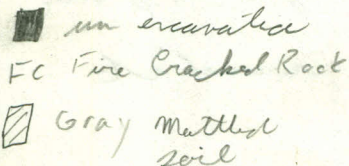 un excavated
FC Fire Cracked Rock
Gray Mottled
soil